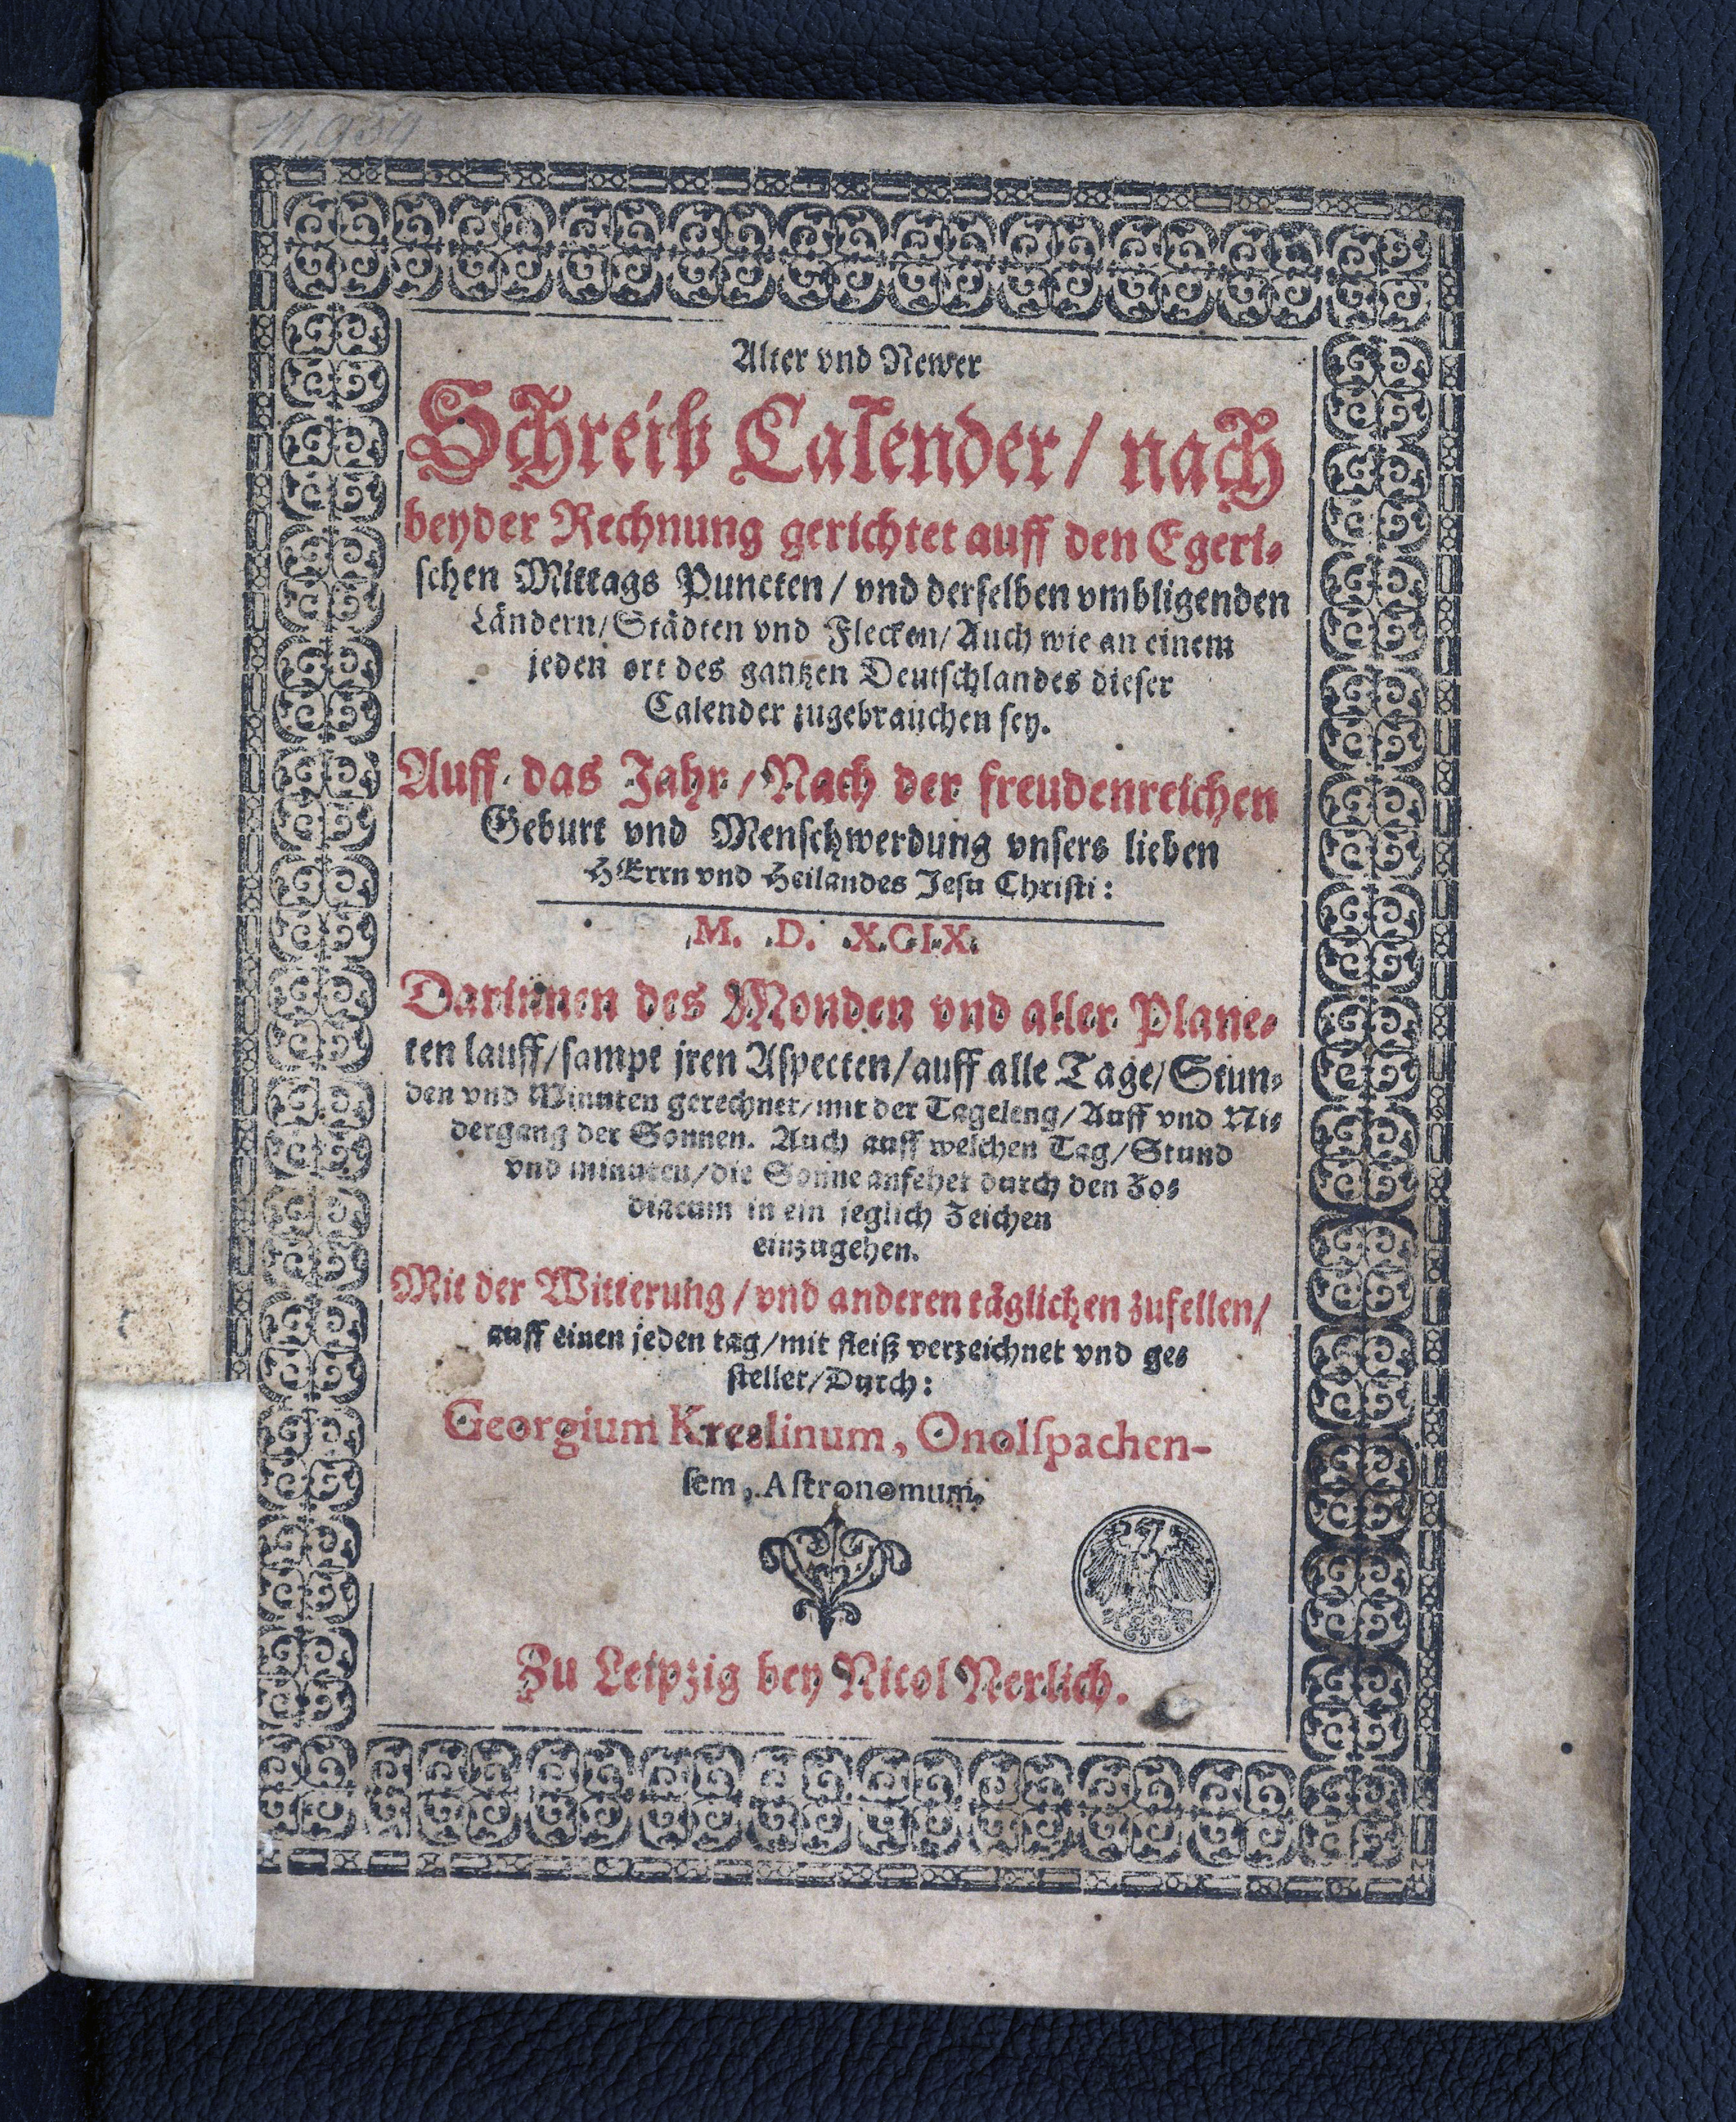 11,934
Alter vnd Newer
Schreib Calender / nach
beyder Rechnung gerichtet auff den Egeri-
schen Mittags Puncten / vnd derselben vmbligenden
Ländern / Städten vnd Flecken / Auch wie an einem
jeden ort des gantzen Deutschlandes dieser
Calender zugebrauchen sey.
Auff das Jahr / Nach der freudenreichen
Geburt vnd Menschwerdung vnsers lieben
HErrn vnd Heilandes Jesu Christi:
M. D. XCIX.
Darinnen des Monden vnd aller Plane-
ten lauff / sampt jren Aspecten / auff alle Tage / Stun-
den vnd Minuten gerechnet / mit der Tageleng / Auff vnd Ni-
dergang der Sonnen. Auch auff welchen Tag / Stund
vnd minuten / die Sonne anfehet durch den Zo-
diacum in ein jeglich Zeichen
einzugehen.
Mit der Witterung / vnd anderen täglichen zufellen /
auff einen jeden tag / mit fleiß verzeichnet vnd ge-
stellet / Durch:
Georgium Kreslinum, Onolspachen-
sem, Astronomum.
Zu Leipzig bey Nicol Nerlich.